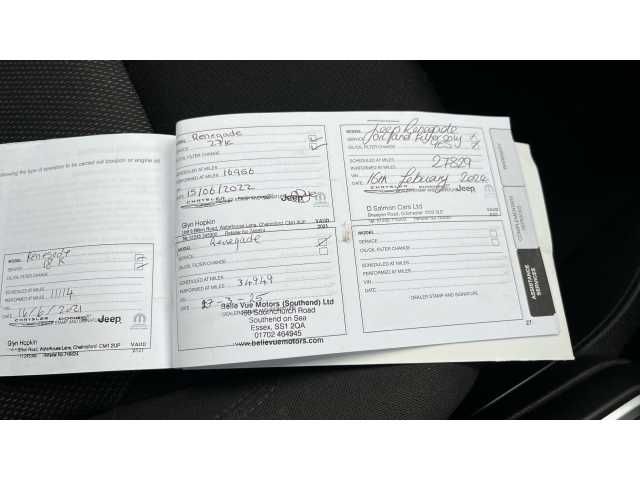 following the type of operation to be carried out (catalion or engine oil
MODEL Renegade
SERVICE 18K
OIL/OIL FILTER CHANGE
SCHEDULED AT MILES
PERFORMED AT MILES 11114
VIN
DATE 16/6/2021
DEALER STAMP AND SIGNATURE
CHRYSLER Jeep
Glyn Hopkin
Waterhouse Lane, Chelmsford CM1 2UF VAUD
MODEL Renegade
SERVICE 27K
OIL/OIL FILTER CHANGE
SCHEDULED AT MILES
PERFORMED AT MILES 16956
VIN
DATE 15/06/2022
CHRYSLER Jeep
Glyn Hopkin
Waterhouse Lane, Chelmsford CM1 2UF VAUD
MODEL Renegade
SERVICE
OIL/OIL FILTER CHANGE
SCHEDULED AT MILES
PERFORMED AT MILES 34949
VIN
DATE -3-25
Belle Vue Motors (Southend) Ltd
Southchurch Road
Southend on Sea
Essex, SS1 2QA
01702 464945
www.bellevuemotors.com
MODEL Jeep Renegade
SERVICE Oil and Filter only
OIL/OIL FILTER CHANGE
SCHEDULED AT MILES
PERFORMED AT MILES 27899
VIN
DATE 16th February 2024
CHRYSLER Jeep
D Salmon Cars Ltd
Colchester
MODEL
SERVICE
OIL/OIL FILTER CHANGE
SCHEDULED AT MILES
PERFORMED AT MILES
VIN
DATE
DEALER STAMP AND SIGNATURE
27
ASSISTANCE
SERVICES